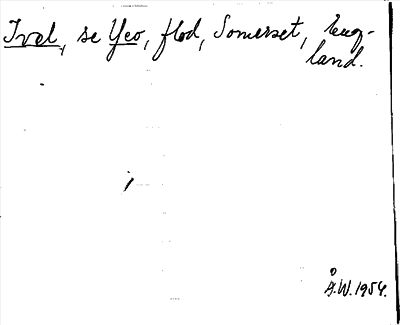 Ivel, se Yeo, flod, Somerset, Eng-
land.
Å.W. 1954.